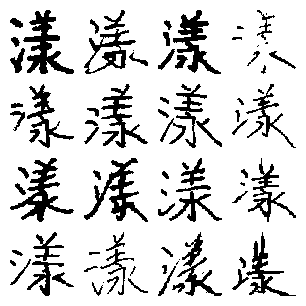 漾漾漾漾
漾漾漾漾
漾漾漾漾
漾漾漾漾